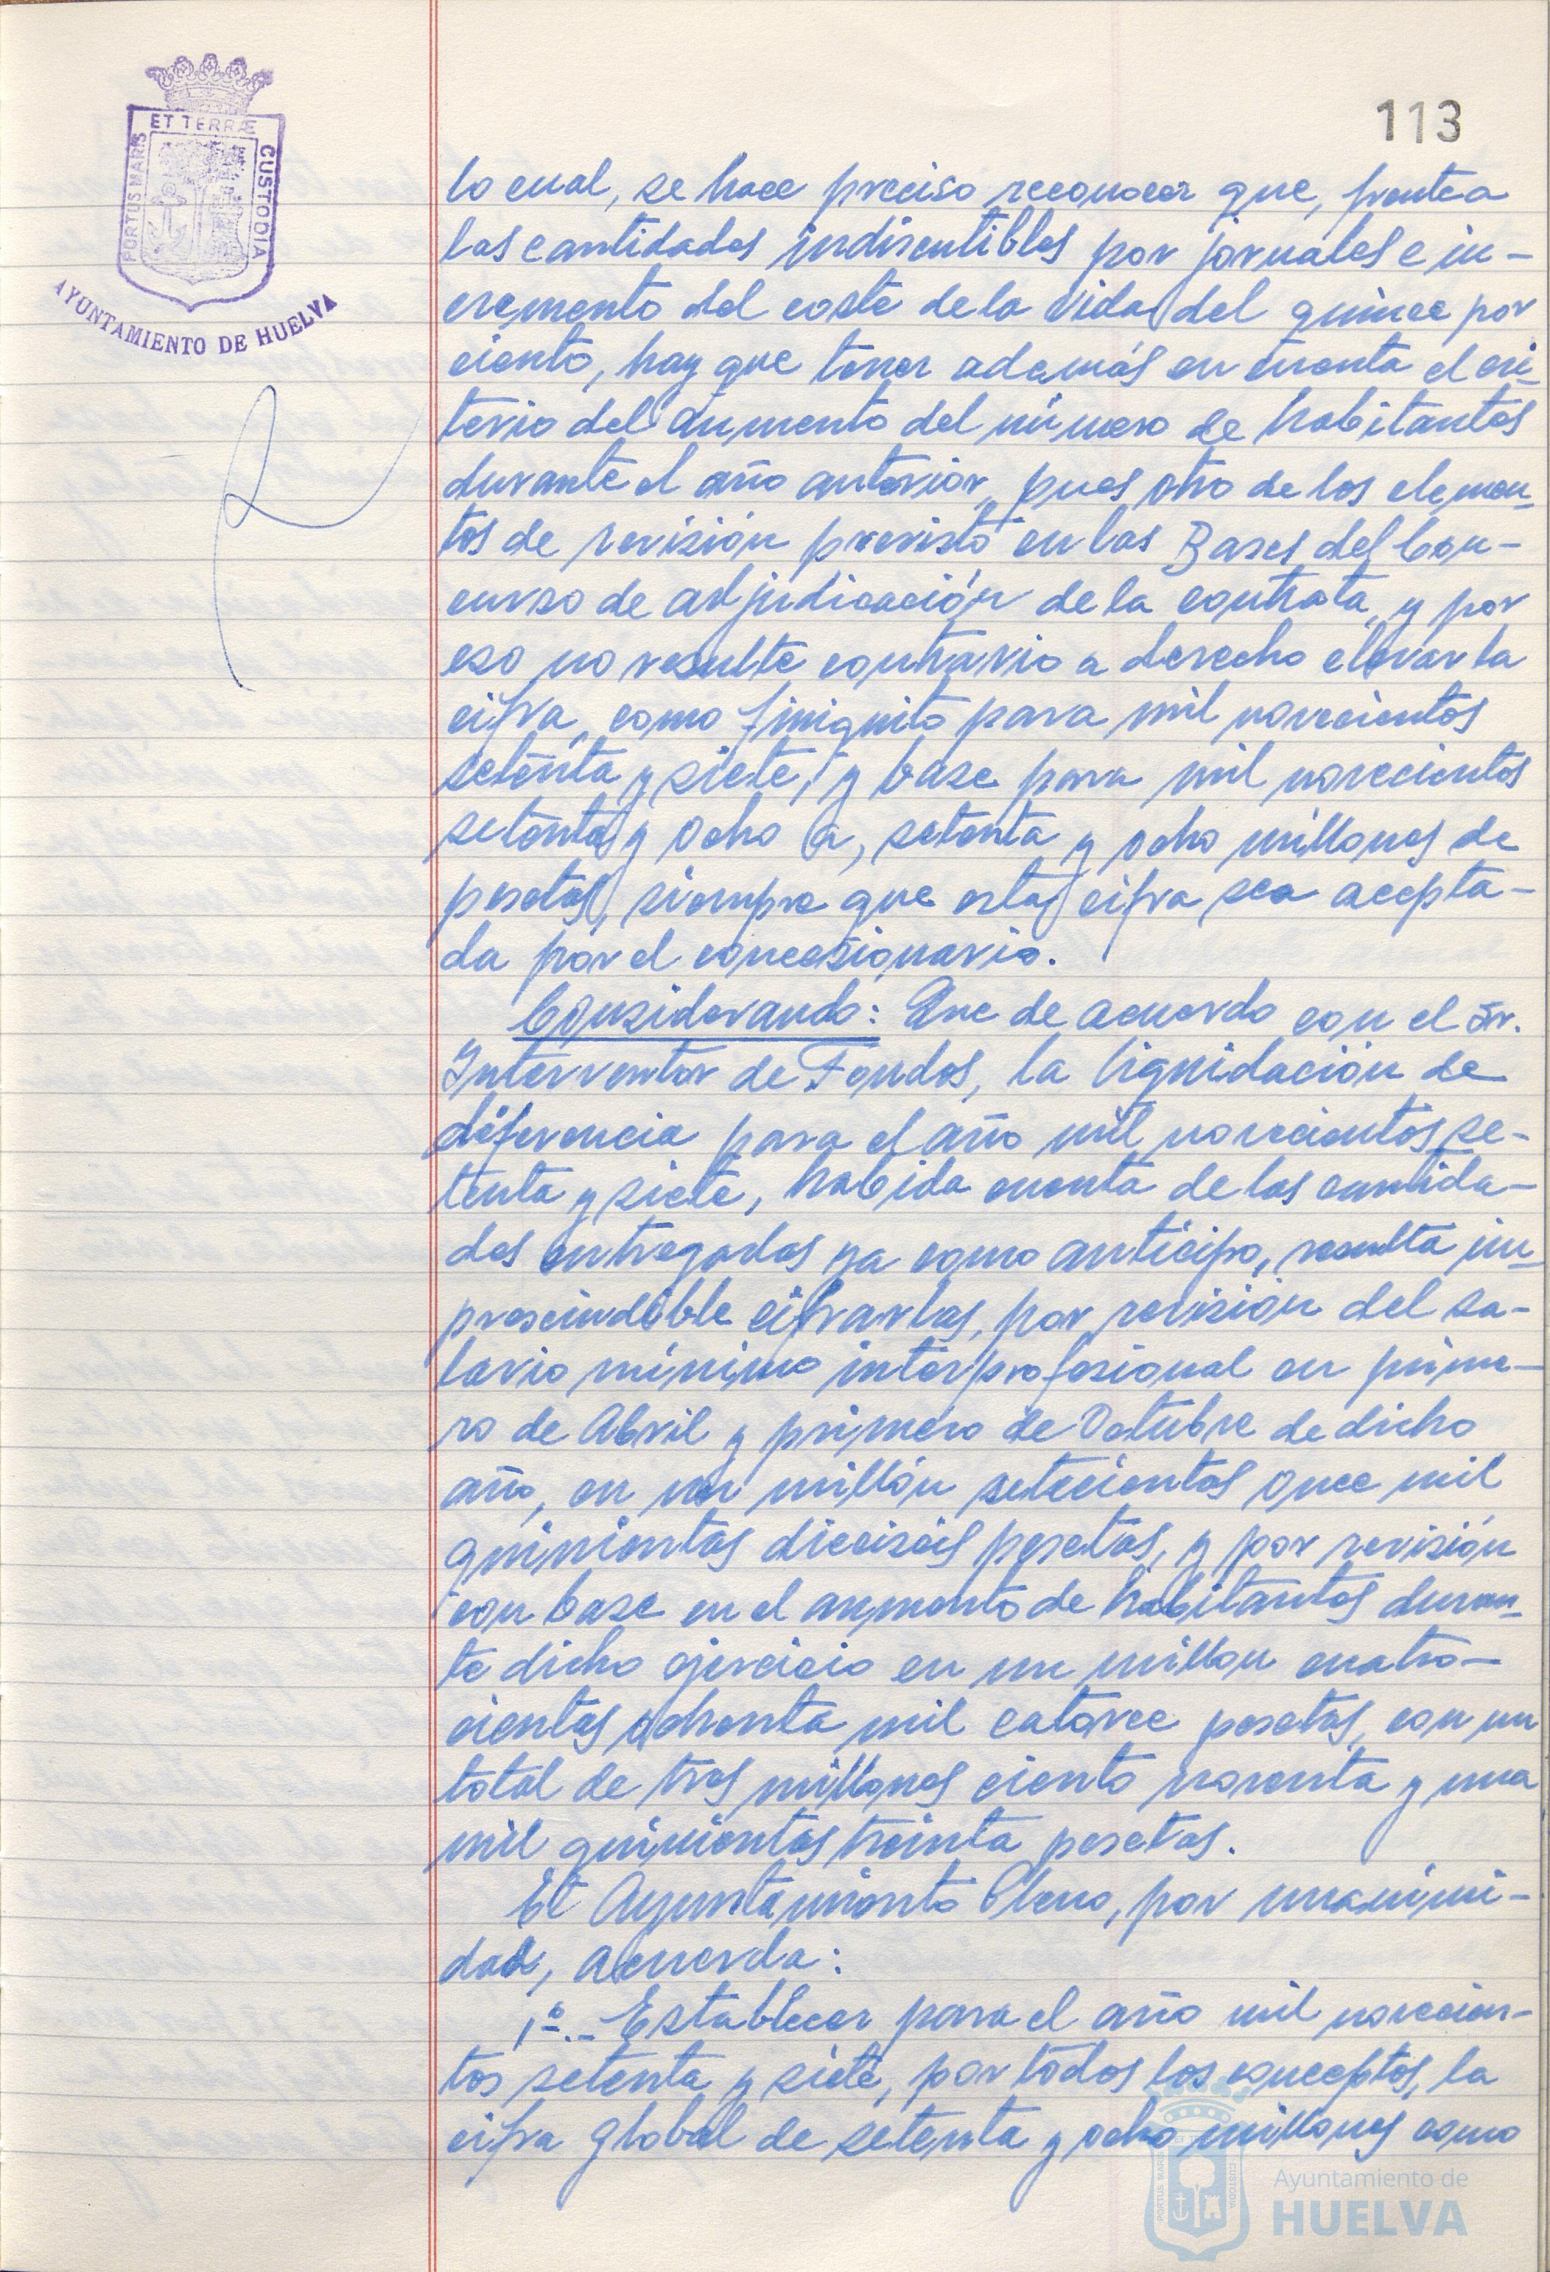 113
ET TERRÆ
PORTUS MARIS
CUSTODIA
AYUNTAMIENTO DE HUELVA
lo cual, se hace preciso reconocer que, frente a
las cantidades indiscutibles por jornales e in-
cremento del coste de la vida del quince por
ciento, hay que tener además en cuenta el cri-
terio del aumento del número de habitantes
durante el año anterior, pues otro de los elemen-
tos de revisión previsto en las Bases del Con-
curso de adjudicación de la contrata, y por
eso no resulte contrario a derecho elevar la
cifra, como finiquito para mil novecientos
setenta y siete, y base para mil novecientos
setenta y ocho a, setenta y ocho millones de
pesetas, siempre que esta cifra sea acepta-
da por el concesionario.
Considerando: Que de acuerdo con el Sr.
Interventor de Fondos, la liquidación de
diferencia para el año mil novecientos se-
tenta y siete, habida cuenta de las cantida-
des entregadas ya como anticipo, resulta im-
prescindible cifrarlas, por revisión del sa-
lario mínimo interprofesional en prime-
ro de Abril y primero de Octubre de dicho
año, en un millón setecientos once mil
quinientas dieciséis pesetas, y por revisión
con base en el aumento de habitantes duran-
te dicho ejercicio en un millon cuatro-
cientas ochenta mil catorce pesetas, con un
total de tres millones ciento noventa y una
mil quinientas treinta pesetas.
El Ayuntamiento Pleno, por unanimi-
dad, acuerda:
1º.- Establecer para el año mil novecien-
tos setenta y siete, por todos los conceptos, la
cifra global de setenta y ocho millones como
Ayuntamiento de
HUELVA